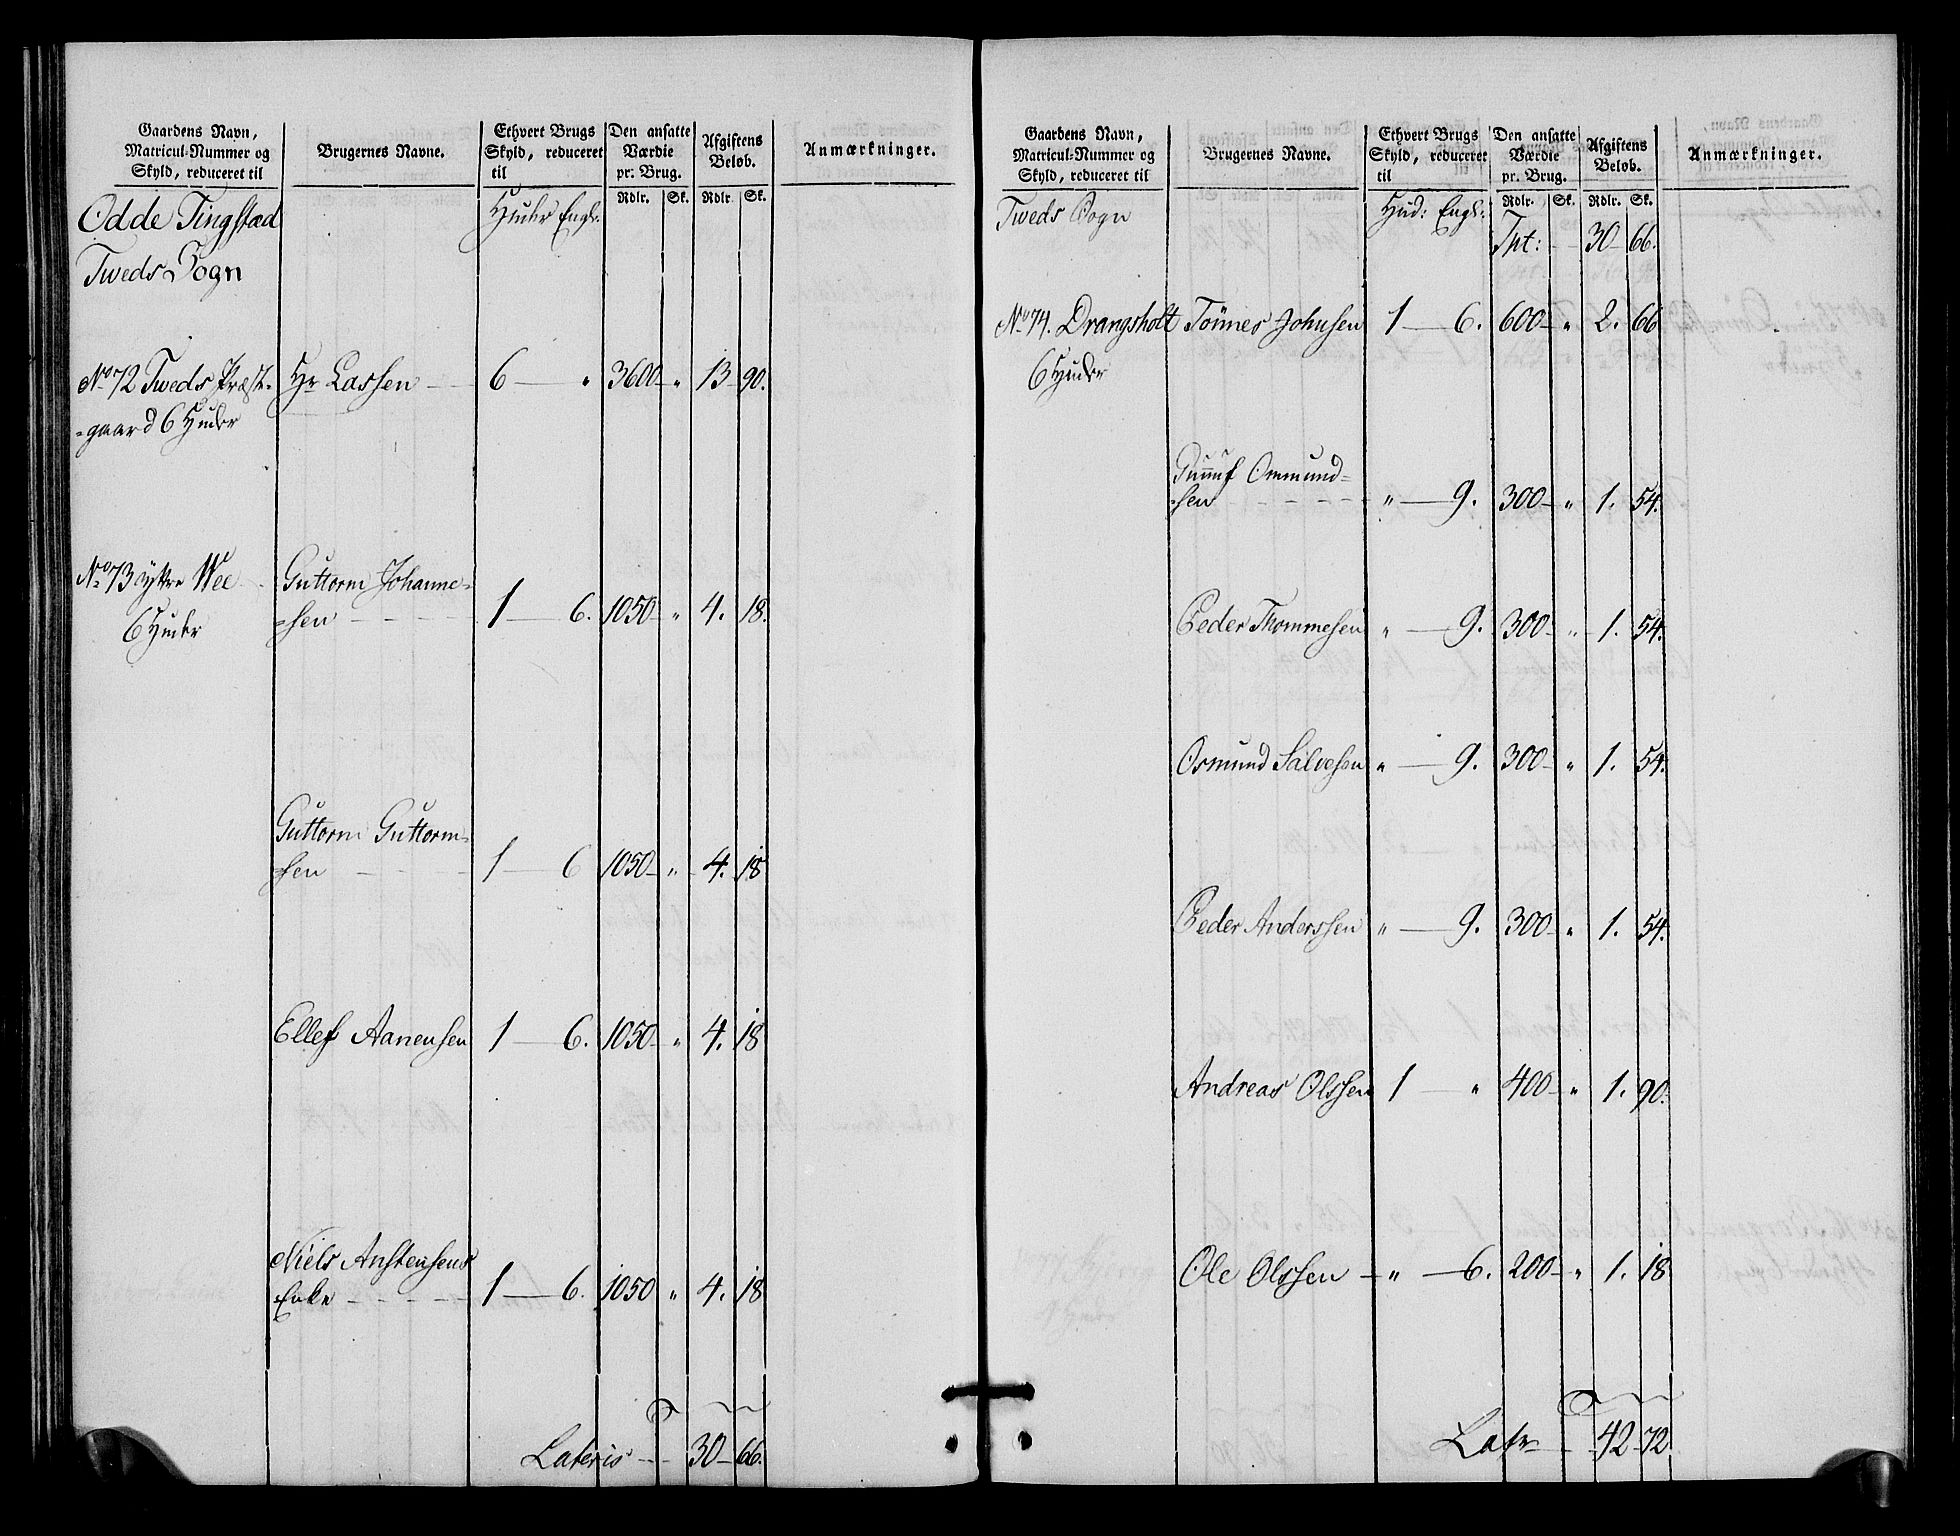 Gaardens Navn,
Matricul-Nummer og
Skyld, reduceret til
Brugernes Navne.
Ethvert Brugs
Skyld, reduceret
til
Den ansatte
Værdie
pr. Brug.
Afgiftens
Beløb.
Anmærkninger.
Rdlr. Sk. Rdlr. Sk.
Odde Tingstæd
Tweds Sogn
Huder Engl:
No 72 Tweds Præst- Hr Lassen 6 " 3600 " 13 90.
=gaard 6 Huder
No 73 ÿttre Wee Guttorm Johanne=
6 Huder =sen 1 6. 1050 " 4. 18.
Guttorm Guttorm=
=sen 1 6 1050 " 4. 18
Ellef Aanensen 1 6. 1050 " 4. 18
Niels Anstensens
Enke 1 6. 1050 " 4. 18
Lateris 30 66.
Gaardens Navn,
Matricul-Nummer og
Skyld, reduceret til
Brugernes Navne.
Ethvert Brugs
Skyld, reduceret
til
Den ansatte
Værdie
pr. Brug.
Afgiftens
Beløb.
Anmærkninger.
Rdlr. Sk. Rdlr. Sk.
Tweds Sogn Hud: Engl:
Tpt: 30 66.
No 74. Drangsholt Tönnes Johnsen 1 6. 600 " 2. 66
6 Huder
Gunnuf Ommund=
=sen " 9. 300 " 1. 54.
Peder Thommesen " 9. 300 " 1. 54.
Osmund Salvesen " 9. 300 " 1. 54.
Peder Anderssen " 9. 300 " 1. 54.
Andreas Olssen 1 " 400 " 1. 90.
Ole Olssen " 6. 200 " 1. 18
Latr 42 72